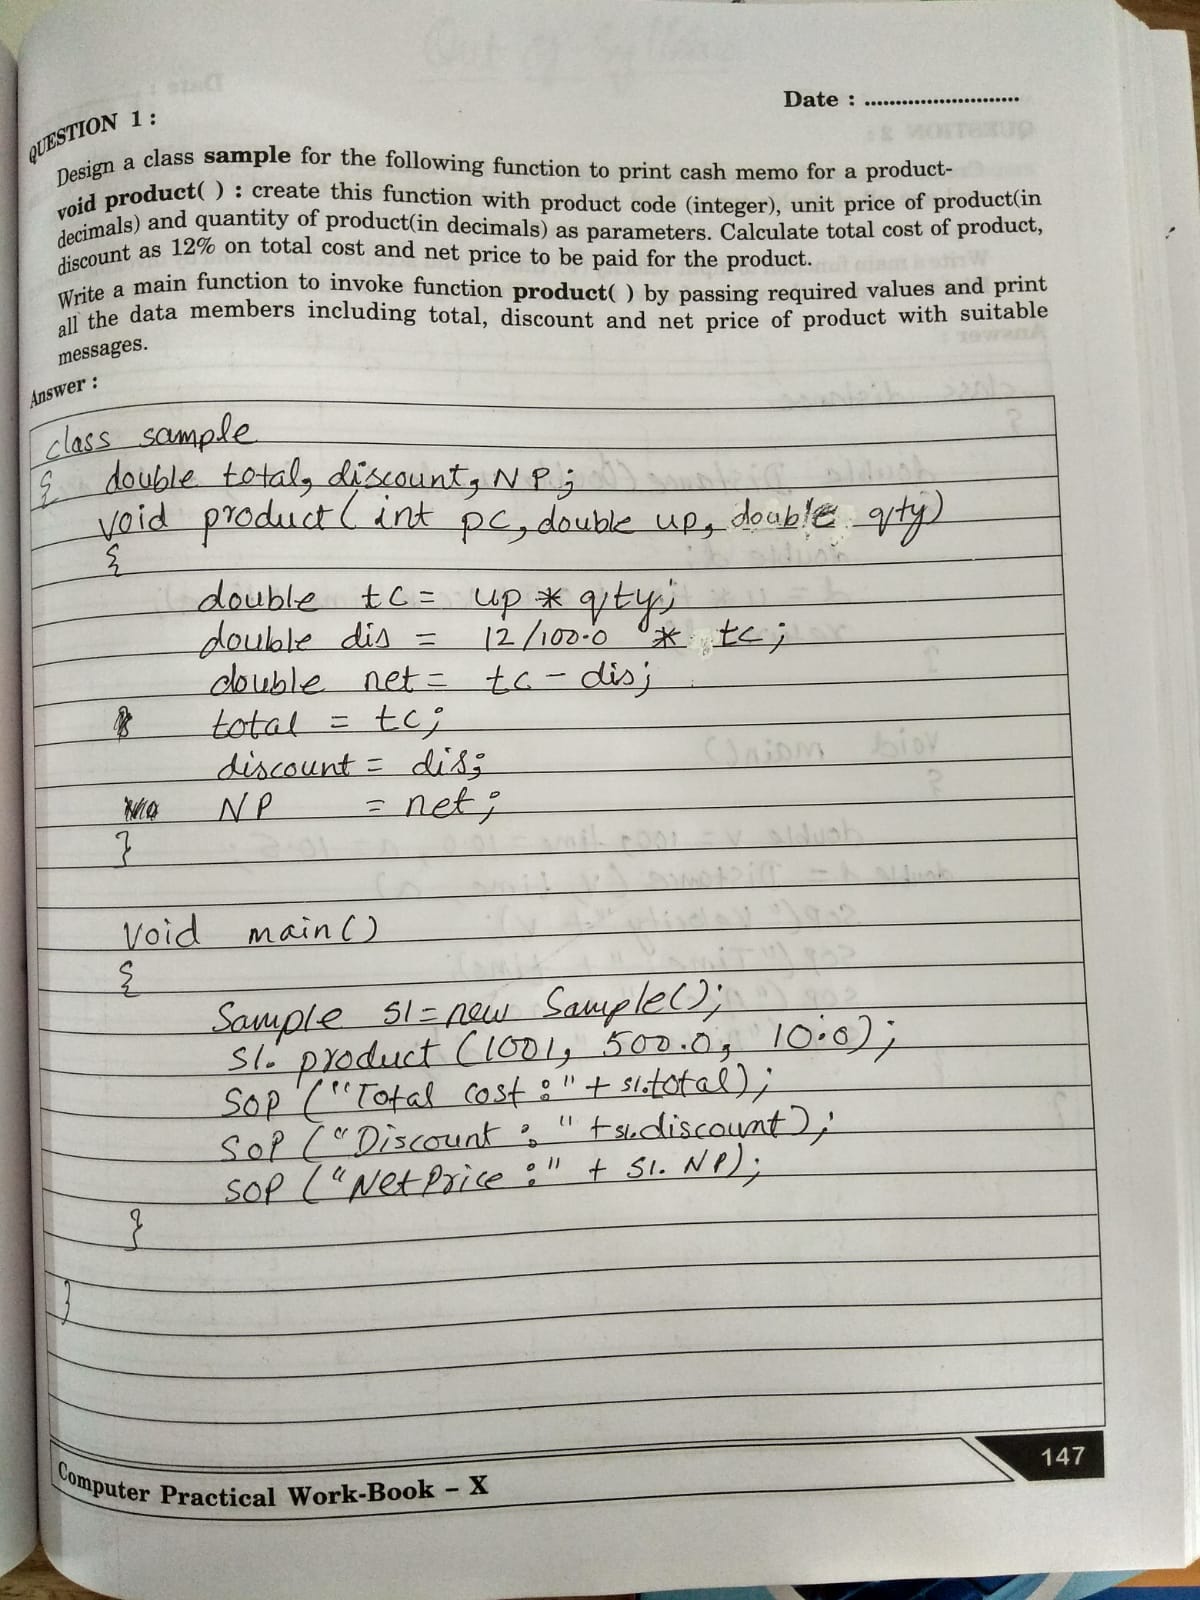 Date : ..........................
QUESTION 1 :
Design a class sample for the following function to print cash memo for a product-
void product( ) : create this function with product code (integer), unit price of product(in
decimals) and quantity of product(in decimals) as parameters. Calculate total cost of product,
discount as 12% on total cost and net price to be paid for the product.
Write a main function to invoke function product( ) by passing required values and print
all the data members including total, discount and net price of product with suitable
messages.
Answer :
class sample
{ double total, discount, NP;
void product( int pc, double up, double qty)
{
double tc = up * qty;
double dis = 12/100.0 * tc;
double net = tc - dis;
total = tc;
discount = dis;
NP = net;
}
void main()
{
Sample s1 = new Sample();
s1. product (1001, 500.0, 10.0);
SOP ("Total cost :" + s1.total);
SOP ("Discount : " + s1.discount);
SOP ("Net Price :" + s1. NP);
}
}
Computer Practical Work-Book – X
147